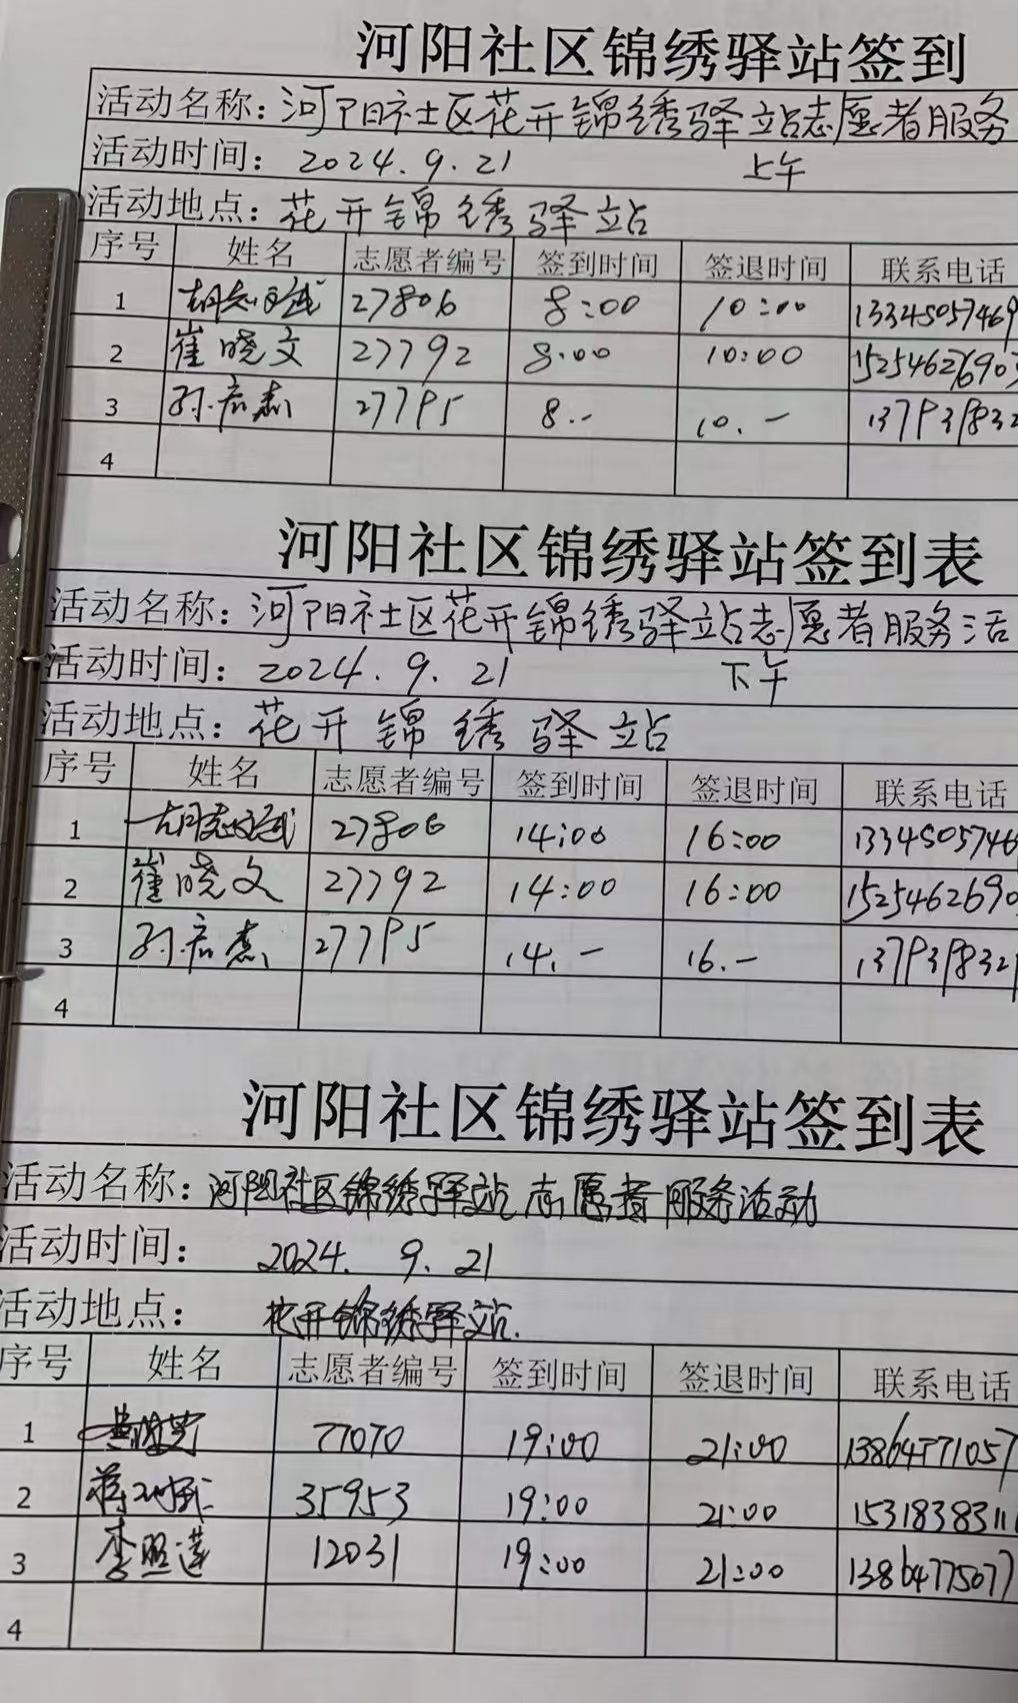 河阳社区锦绣驿站签到
活动名称：河阳社区花开锦绣驿站志愿者服务
活动时间：2024.9.21 上午
活动地点：花开锦绣驿站
序号 姓名 志愿者编号 签到时间 签退时间 联系电话
1 27806 8:00 10:00 1334505746
2 崔晓文 27792 8:00 10:00 1525462690
3 孙启杰 27795 8.- 10.- 137939832
4
河阳社区锦绣驿站签到表
活动名称：河阳社区花开锦绣驿站志愿者服务活
活动时间：2024.9.21 下午
活动地点：花开锦绣驿站
序号 姓名 志愿者编号 签到时间 签退时间 联系电话
1 27806 14:00 16:00 1334505746
2 崔晓文 27792 14:00 16:00 1525462690
3 孙启杰 27795 14.- 16.- 1379398321
4
河阳社区锦绣驿站签到表
活动名称：河阳社区锦绣驿站志愿者服务活动
活动时间：2024.9.21
活动地点：花开锦绣驿站.
序号 姓名 志愿者编号 签到时间 签退时间 联系电话
1 77070 19:00 21:00 13864771057
2 35953 19:00 21:00 1531838311
3 李照莲 12031 19:00 21:00 13864775077
4